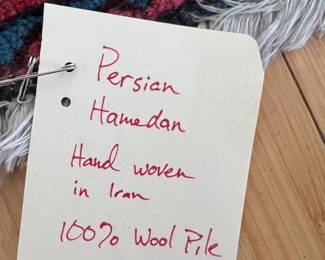 Persian
Hamedan
Hand woven
in Iran
100% Wool Pile